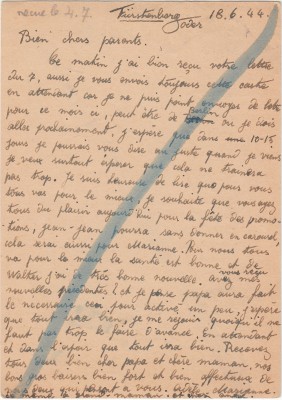 reçue le 4.7 Fürstenberg 18.6.44.
Oder
Bien chers parents.
Ce matin j'ai bien reçu votre lettre
du 7, aussi je vous envois toujours cette carte
en attendant car je ne puis point envoyer de lettre
pour ce mois ci, peut être de Berlin où je dois
aller prochainement, j'espère que dans une 10-15
jours je pourrais vous dire au juste quand je viens
je veux surtout espérer que cela ne trainera
pas trop. Je suis heureux de lire que pour vous
tous vas pour le mieux, je souhaite que vous ayez
tous du plaisir aujourd'hui pour la fête des promo-
tions, Jean-Jean pourra s'en donner en carousel,
cela sera aussi pour Marianne. Pour nous tous
va pour le mieux la santé est bonne et de
Walter j'ai de très bonne nouvelle. Avez vous reçu mes
nouvelles précédentes et je pense papa aura fait
le necessaire ceci pour activer un peu, j'espère
que tout ira bien, je me réjouis quoiqu'il ne
faut pas trop le faire d'avance. En attendant
et dans l'espoir que tout ira bien. Recevez
tous deux bien cher papa et chère maman, nos
bons gros baisers bien fort et bien affectueux de
nous deux qui pensent à vous. Marianne.